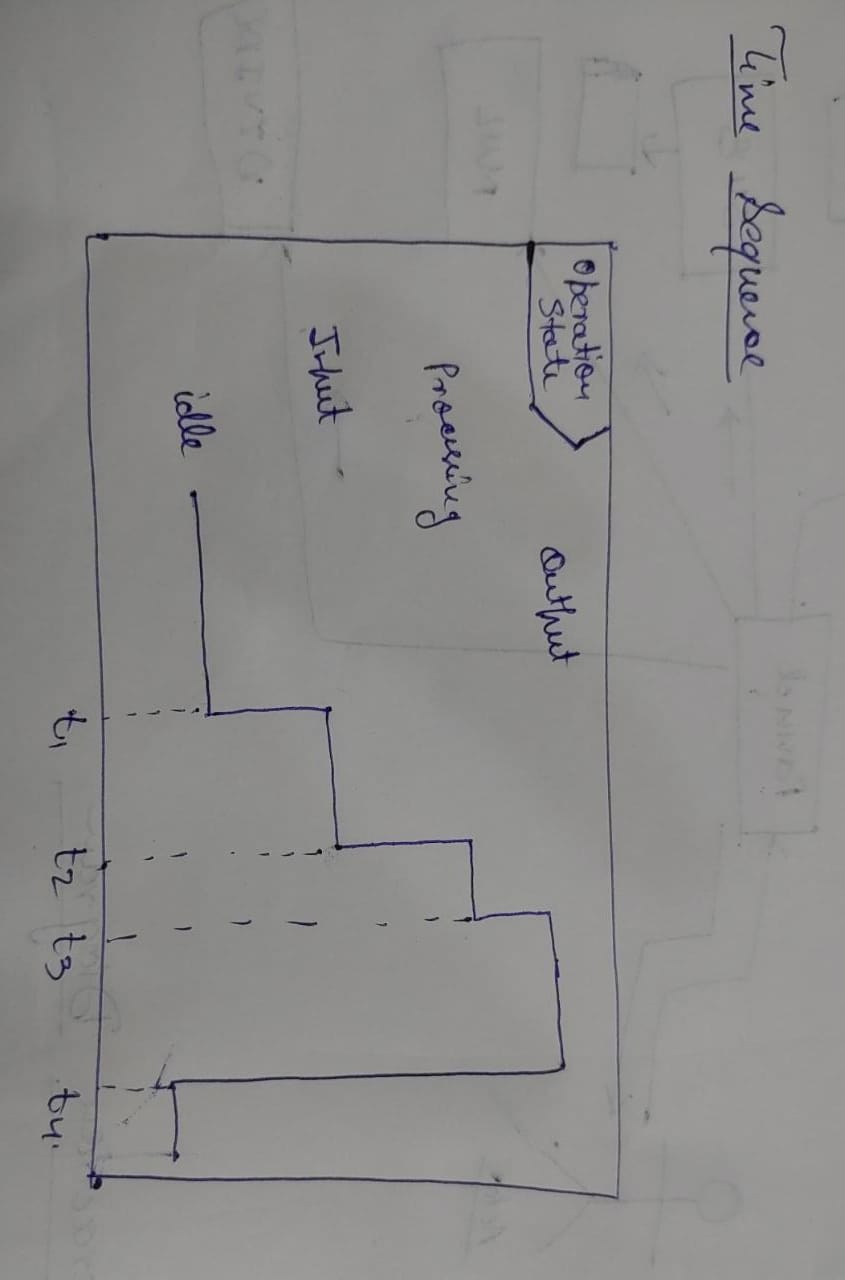 Time Sequence
Operation
State
Output
Processing
Input
idle
t1
t2
t3
t4